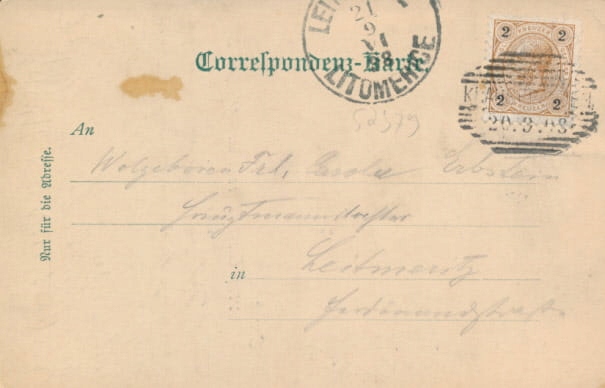 LEI
21
9
VI
98
LITOMĚŘICE
Correspondenz-Karte.
2 KREUZER 2
2 2
KLA
20.3.98
52379
An
Wolgeboren Frl. Carola Erbstein
Hauptmannstochter
in Leitmeritz
Ferdinandstraße
Nur für die Adresse.